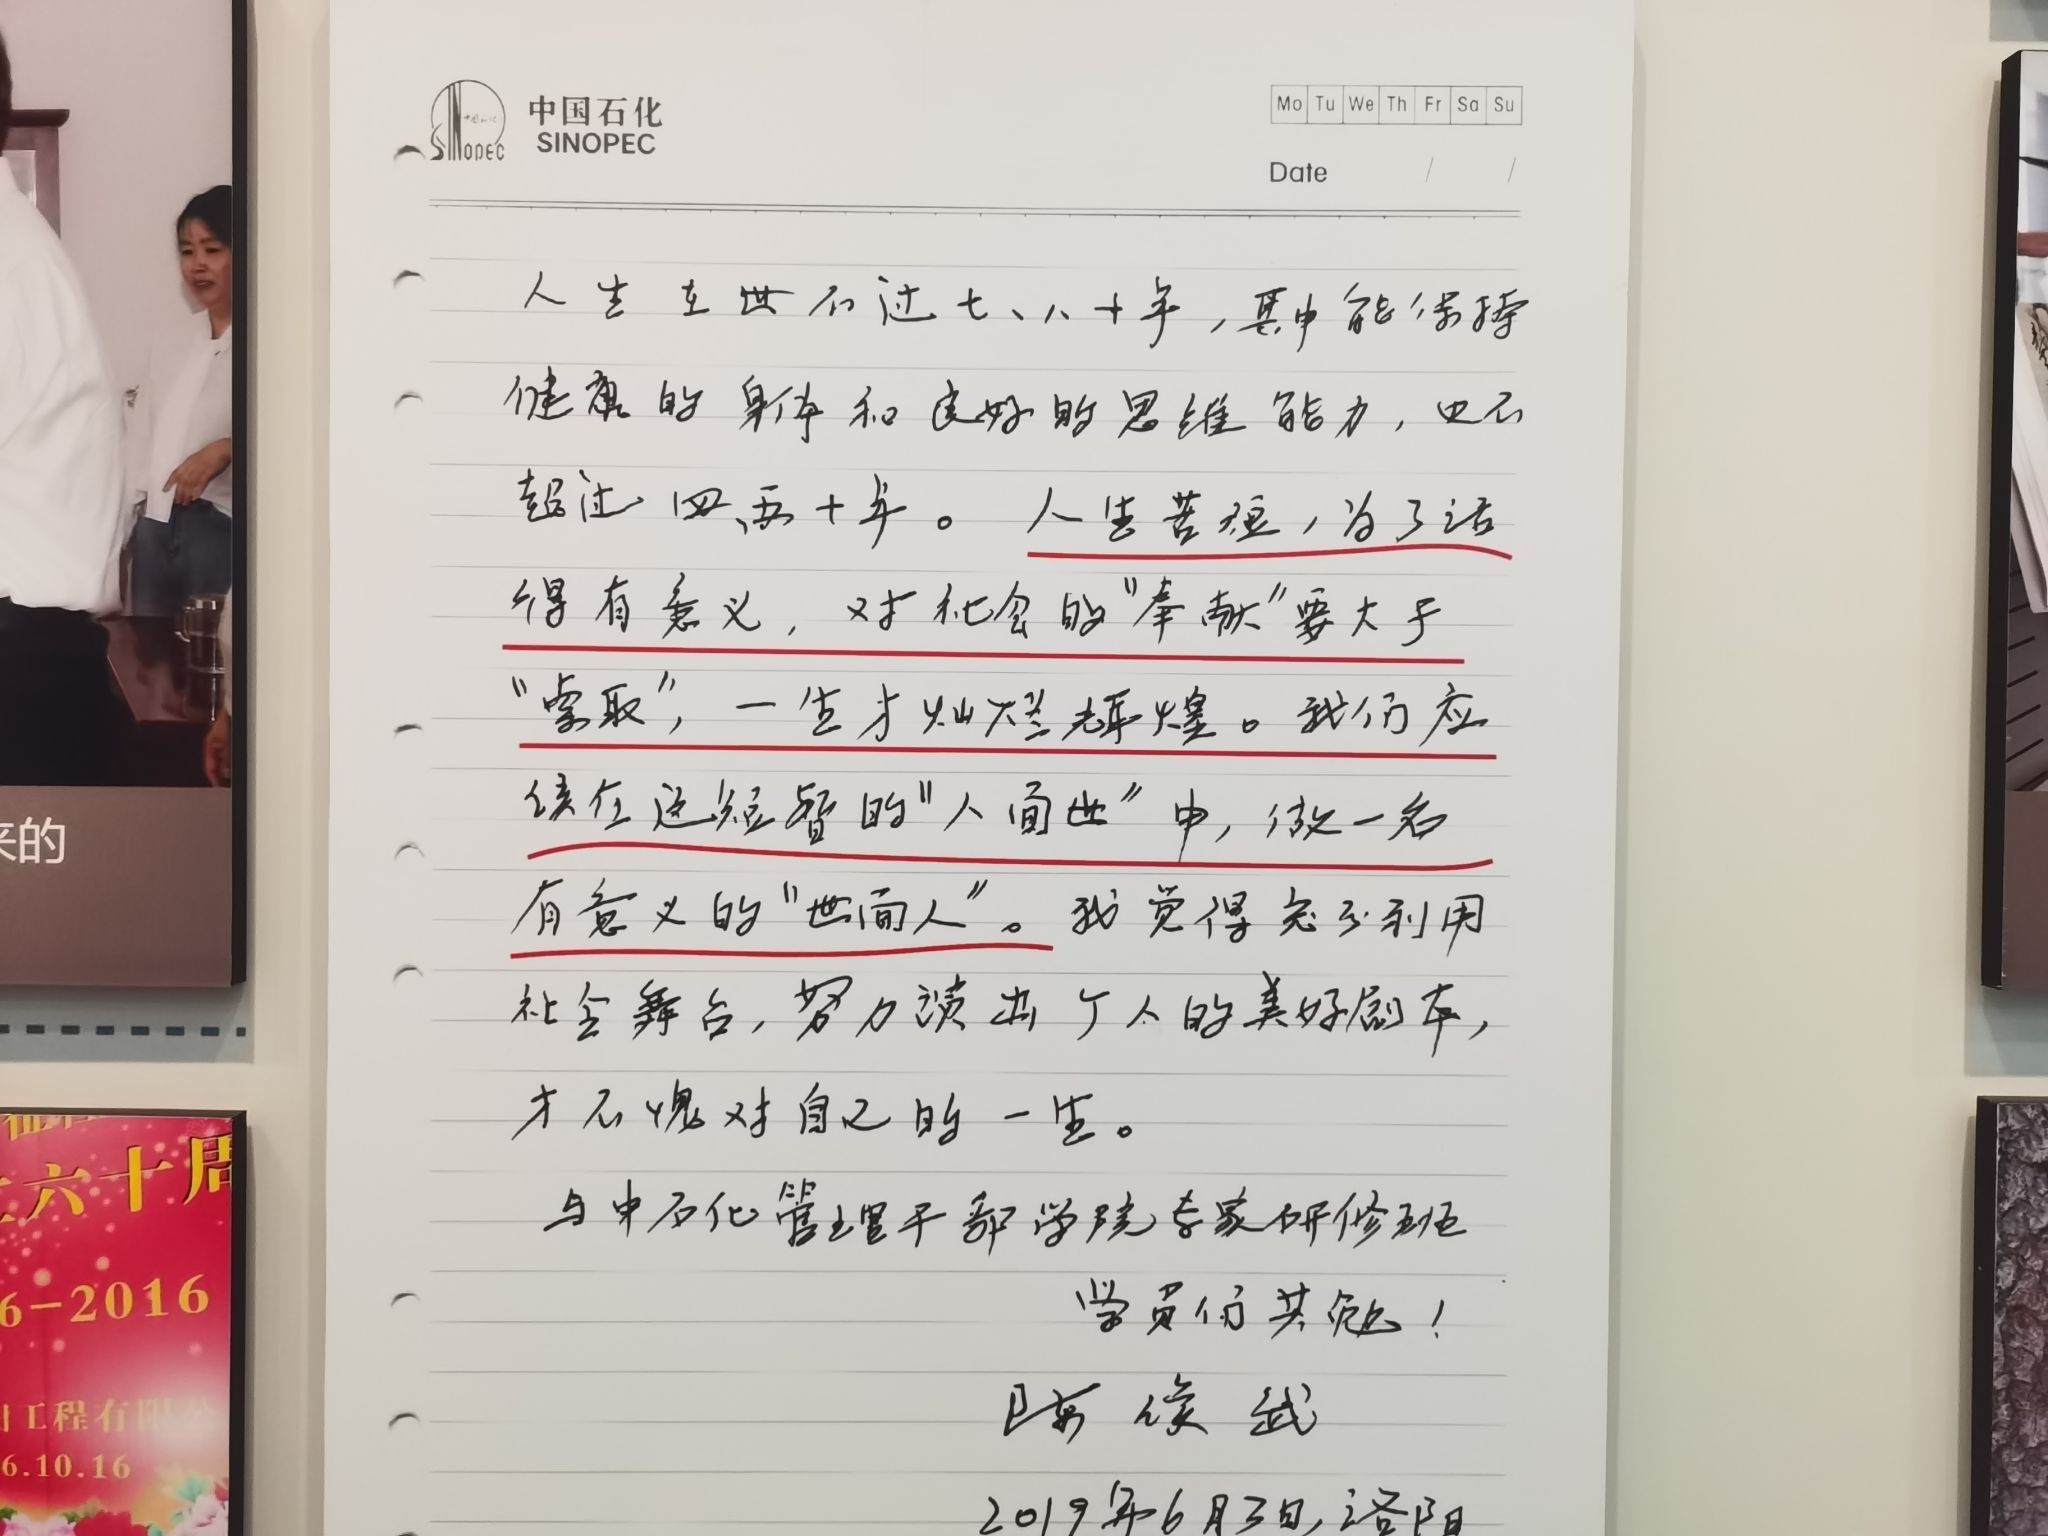 中国石化
SINOPEC
Mo Tu We Th Fr Sa Su
Date / /
人生在世不过七、八十年，其中能保持
健康的身体和良好的思维能力，也不
超过四、五十年。人生苦短，为了活
得有意义，对社会的“奉献”要大于
“索取”，一生才灿烂辉煌。我们应
该在这短暂的“人间世”中，做一名
有意义的“世间人”。我觉得利用
社会舞台，努力演出个人的美好剧本，
才不愧对自己的一生。
与中石化管理干部学院专家研修班
学员们共勉！
陈俊武
2019年6月3日，洛阳
来的
六十周
6-2016
工程有限公
6.10.16